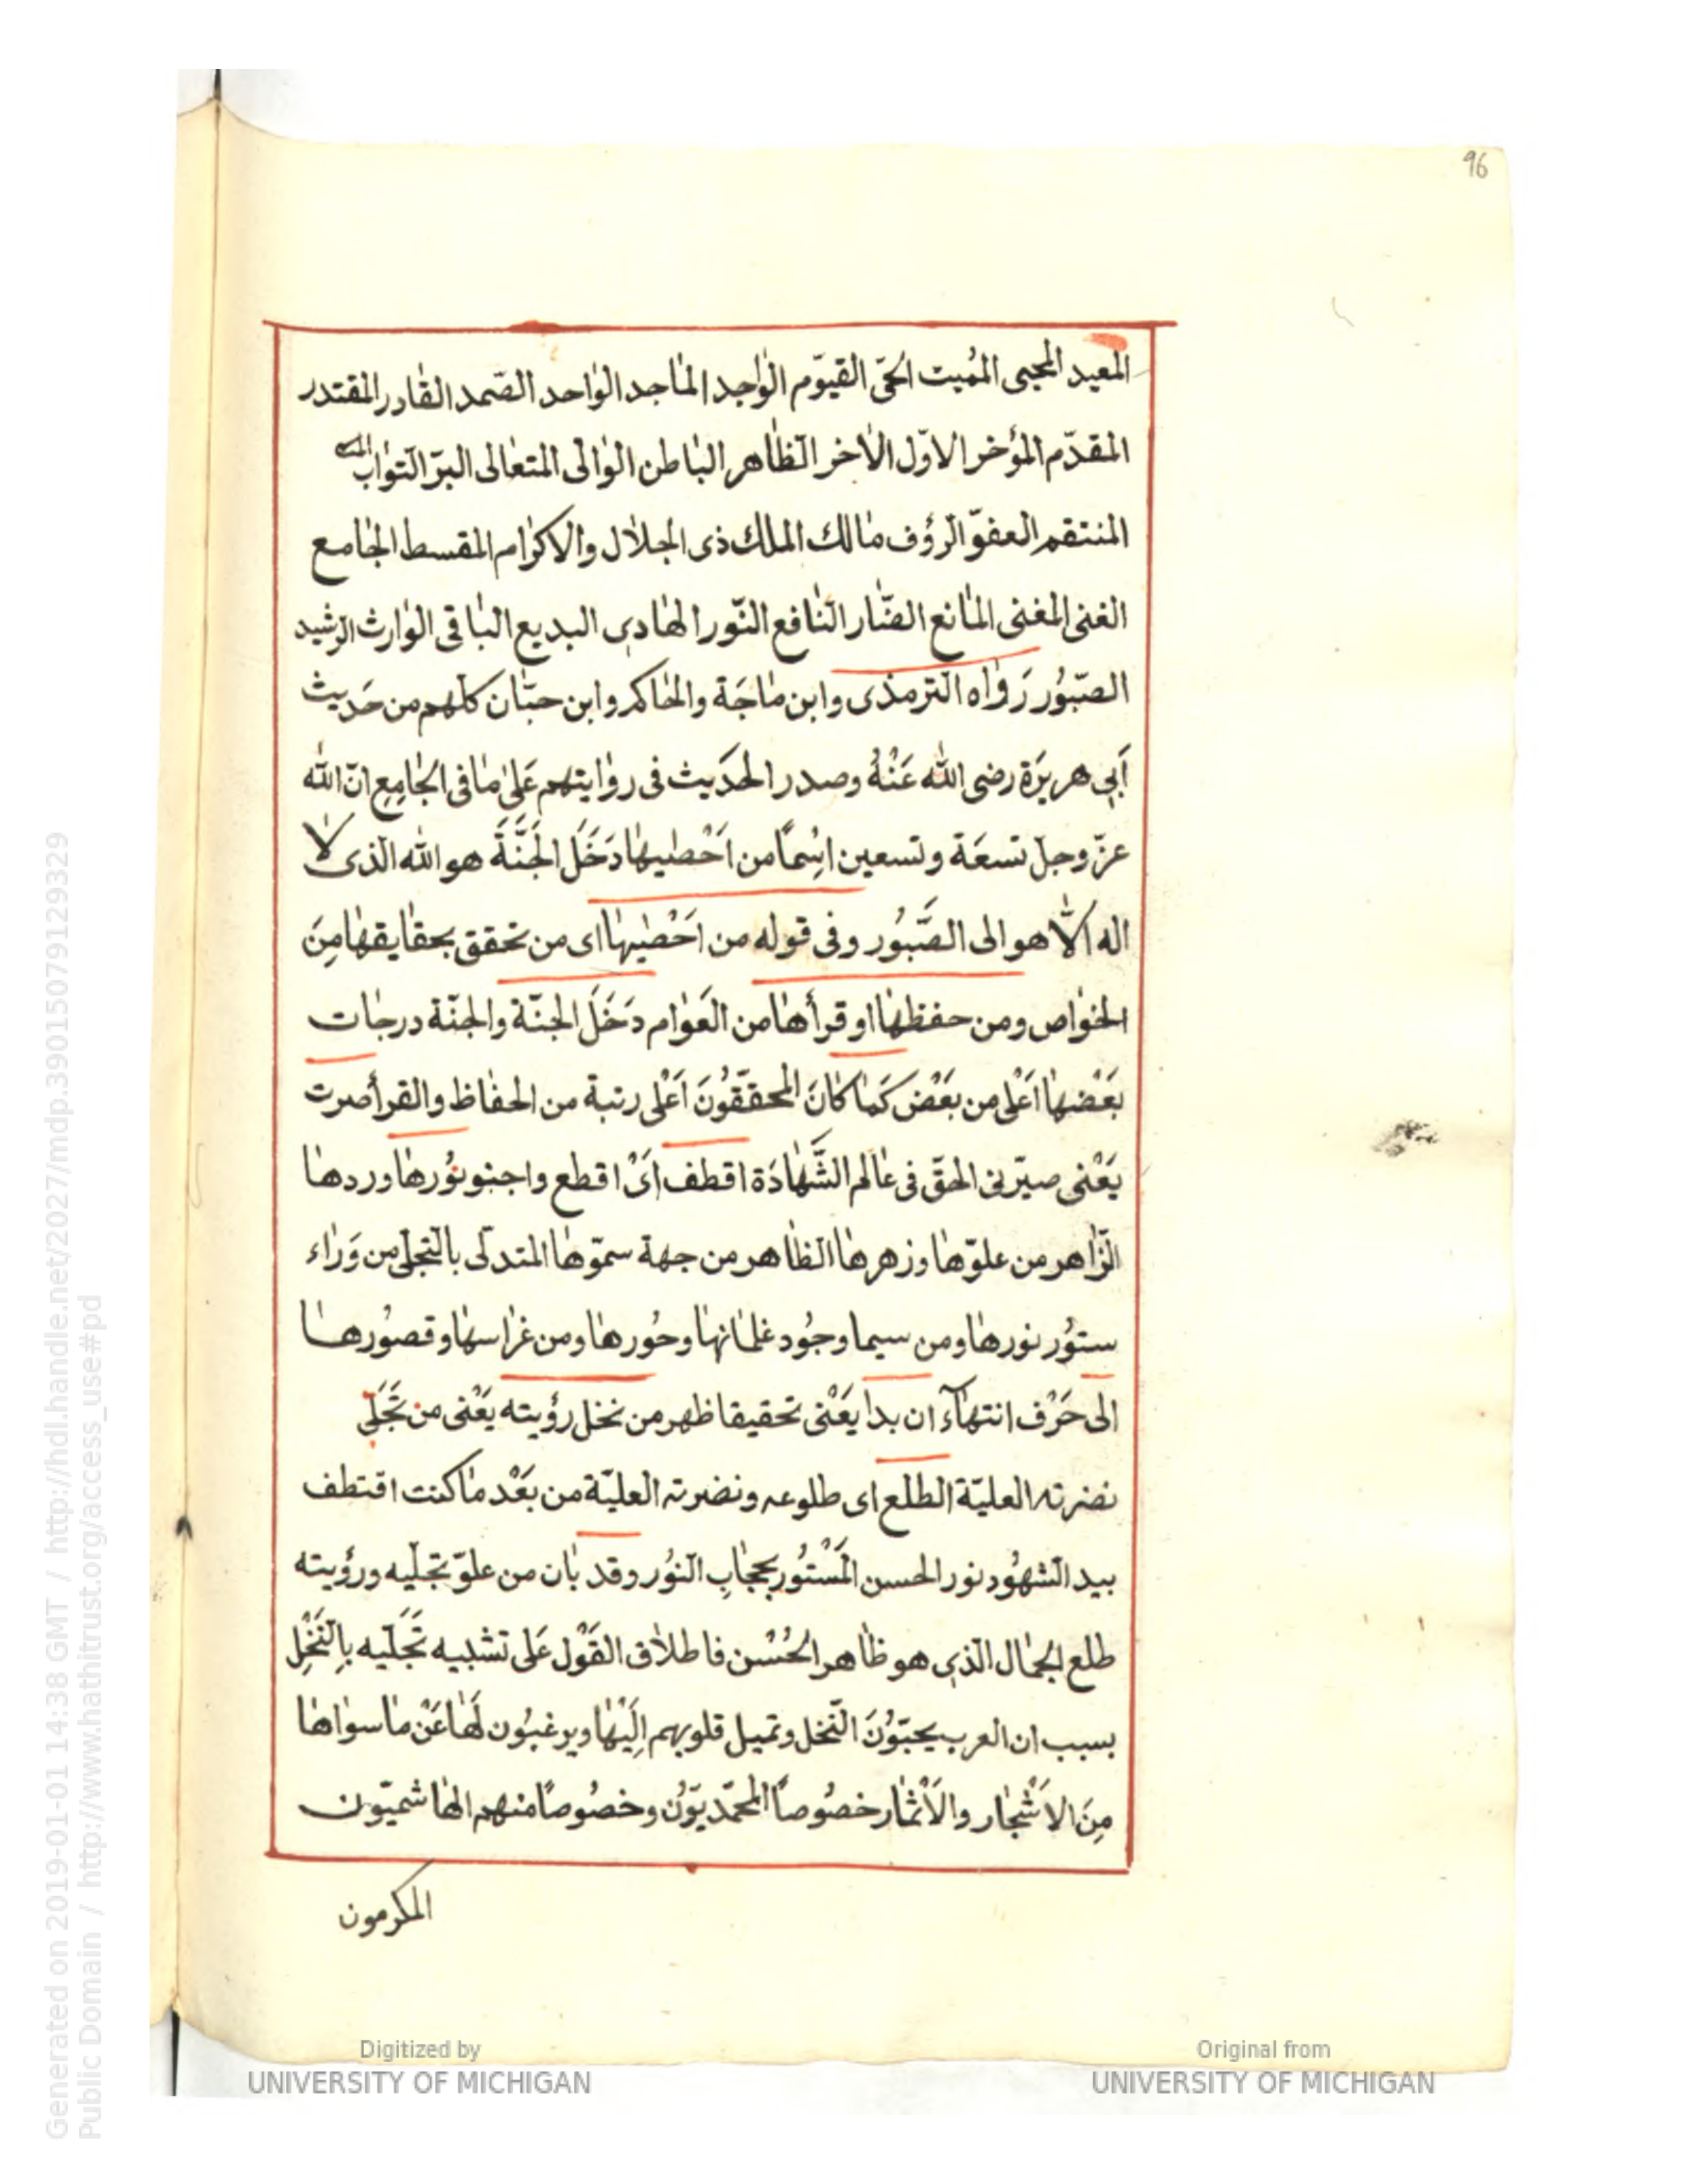 96
المعيد المحيى المُميت الحَىّ القيّوم الوٰاجد المٰاجد الوٰاحد الصّمد القٰادر المقتدر
المقدّم المؤخر الاوّل الاٰخر الظّاهر البٰاطن الوٰالى المتعٰالى البرّ التوّاب
المنتقم العفوّ الرؤف مٰالك الملك ذى الجلاٰل والاكرٰام المقسط الجٰامع
الغنى المغنى المٰانع الضّار النّافع النّور الهٰادى البديع البٰاقى الوٰارث الرّشيد
الصّبُور رَوٰاه التّرمذى وابن مٰاجَة والحٰاكم وابن حبّان كلهم من حَديث
أبى هريرَة رضى اللّٰه عَنْهُ وصدر الحدَيث فى روٰايتهم عَلىٰ مٰا فى الجٰامِعِ انّ اللّٰه
عزّ وجلّ تسعَة وتسعين اسْماً من اَحْصٰيهٰا دَخَلَ الجَنَّةَ هو اللّٰه الذى لاٰ
اله الاّٰ هو الى الصَّبُور وفى قوله من اَحْصٰيهٰا اى من تحقق بحقٰايقهٰا مِنَ
الخوٰاص ومن حفظهٰا او قرأهٰا من العَوٰام دَخَلَ الجنّة والجنّة درجٰات
بَعْضهٰا اَعْلى من بَعْض كَمٰا كٰانَ المحققُّونَ اَعْلى رتبة من الحفٰاظ والقرأ صرت
يَعْنى صيّرنى الحقّ فى عٰالم الشَّهٰادَة اقطف اَىْ اقطع واجنو نُورهٰا وردهٰا
الزّاهر من علوّهٰا وزهرهٰا الظٰاهر من جهة سموّهٰا المتدلّى بالتّجلّى من وَرٰاء
ستوُر نورهٰا ومن سيما وجُود غلمٰانهٰا وحُورهٰا ومن غرٰاسهٰا وقصُورهٰا
الى حَرْف انتهٰآء ان بدا يَعْنى تحقيقا ظهر من نخل رؤيته يَعْنى من تَجَلّى
نضرته العليّة الطلع اى طلوعه ونضرته العليّة من بَعْد مٰا كنت اقتطف
بيد الشهُود نور الحسن المَسْتُور بحجٰابِ النّوُر وقد بٰان من علوّ تجلّيه ورؤيته
طلع الجمٰال الّذى هو ظٰاهر الحُسْن فاطلاٰق القَوْل عَلى تشبيه تَجَلّيه بالنَّخْلِ
بسبب ان العرب يحبّوُنَ النّخل وتميل قلوبهم اِلَيْهٰا ويرغبُون لَهٰا عَنْ مٰا سوٰاهٰا
مِنَ الاَشْجٰار والاَثْمٰار خصُوصاً المحمّديّوُن وخصُوصاً منهم الهٰاشميّون
المكرمون
Generated on 2019-01-01 14:38 GMT / http://hdl.handle.net/2027/mdp.39015079129329
Public Domain / http://www.hathitrust.org/access_use#pd
Digitized by
UNIVERSITY OF MICHIGAN
Original from
UNIVERSITY OF MICHIGAN